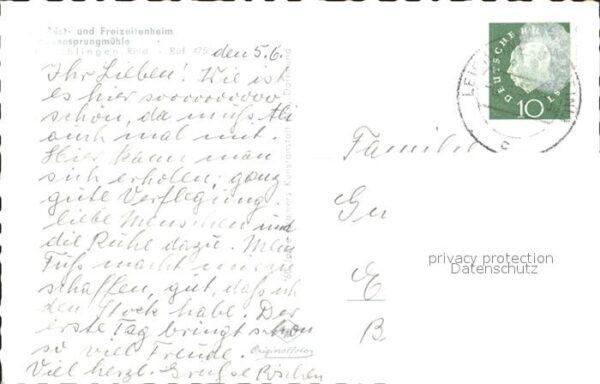 Rüst- und Freizeitenheim
sprungmühle
Rhld. - Ruf 475
den 5.6.
Ihr Lieben! Wie ist
es hier sooooooooo
schön, da muß Ali
auch mal mit.
Hier kann man
sich erholen; ganz
gute Verflegung.
liebe Menschen und
die Ruhe dazu. Mein
Fuß macht mir zu
schaffen, gut, daß ich
den Stock habe. Der
erste Tag bringt schon
so viel Freude.
Viel herzl. Grüße Röschen
Originalfoto
DEUTSCHE BUNDESPOST
10
Familie
privacy protection
Datenschutz
B